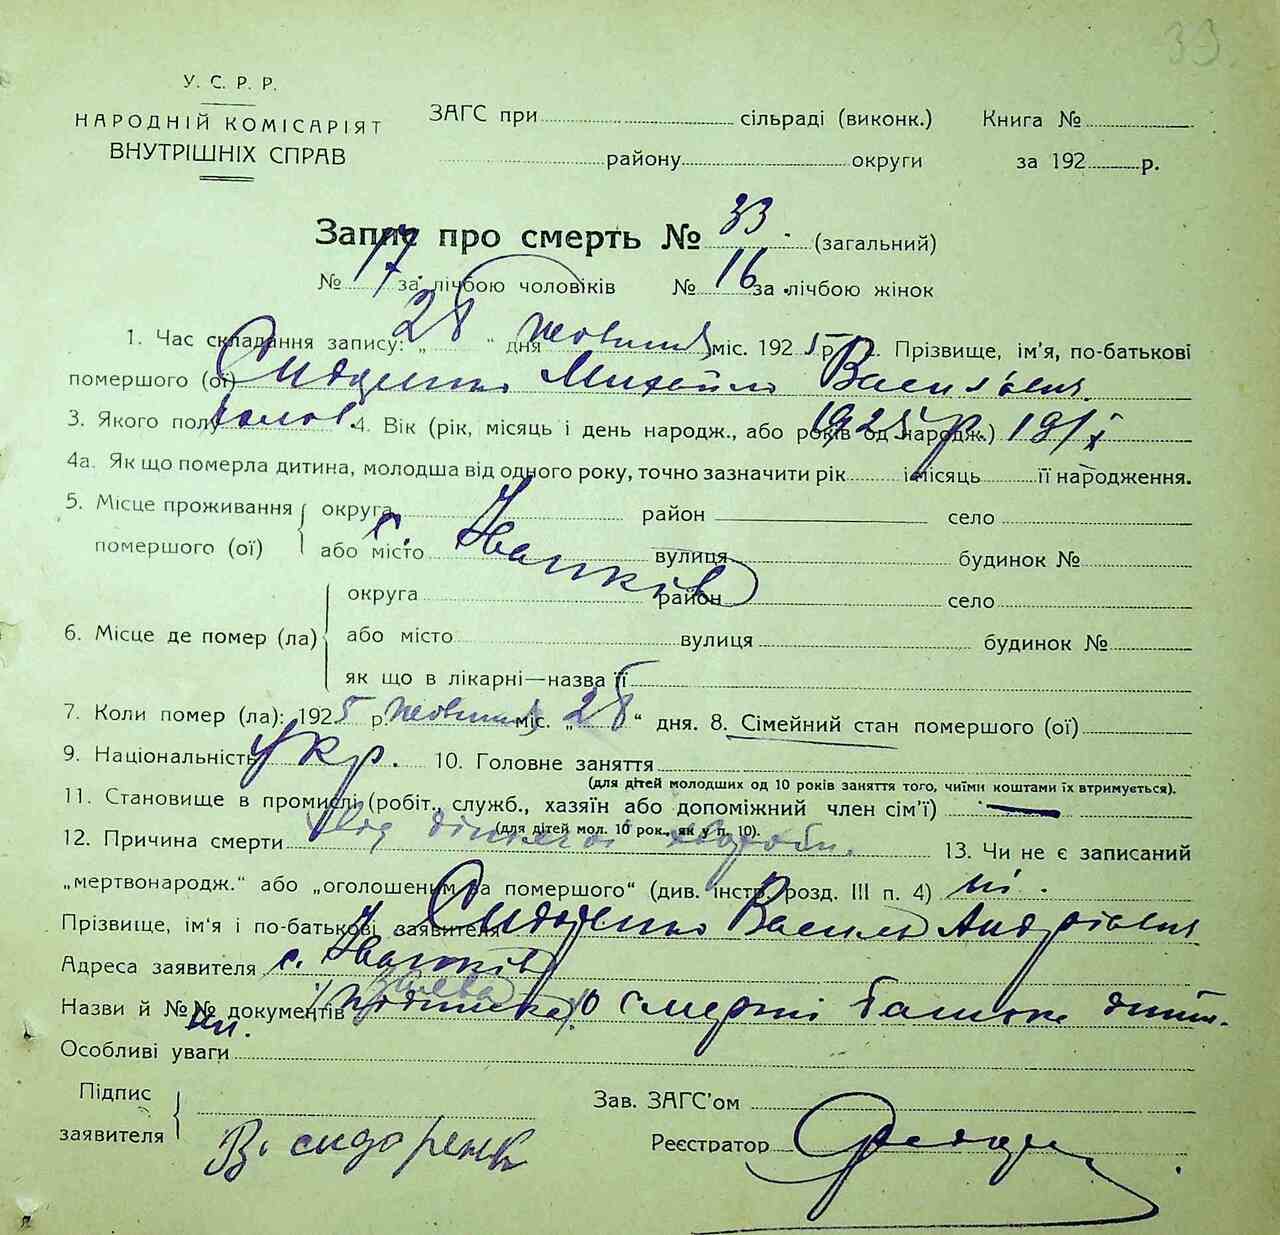 33.
У. С. Р. Р.
НАРОДНІЙ КОМІСАРІЯТ
ВНУТРІШНІХ СПРАВ
ЗАГС при сільраді (виконк.)
району округи
Книга №
за 192 р.
Запис про смерть № 33. (загальний)
№ 17. за лічбою чоловіків № 16 за лічбою жінок
1. Час складання запису: „28“ дня жовтня міс. 1925 р. 2. Прізвище, ім'я, по-батькові
помершого (ої) Сидоренко Михайло Васильович
3. Якого полу чолов. 4. Вік (рік, місяць і день народж., або років од народж.) 1925 р. 19/X
4а. Як що померла дитина, молодша від одного року, точно зазначити рік і місяць її народження.
5. Місце проживання помершого (ої) округа район село
або місто с. Іванків вулиця будинок №
6. Місце де помер (ла) округа район село
або місто вулиця будинок №
як що в лікарні—назва її
7. Коли помер (ла): 1925 р. жовтня міс. „28“ дня. 8. Сімейний стан помершого (ої)
9. Національність укр. 10. Головне заняття
(для дітей молодших од 10 років заняття того, чиїми коштами їх втримується).
11. Становище в промислі (робіт., служб., хазяїн або допоміжний член сім'ї) —
(для дітей мол. 10 рок., як у п. 10).
12. Причина смерти Від дитячої хвороби. 13. Чи не є записаний
„мертвонародж.“ або „оголошеним за помершого“ (див. інстр. розд. III п. 4) ні.
Прізвище, ім'я і по-батькові заявителя Сидоренко Василь Андрієвич
Адреса заявителя с. Іванків
Назви й №№ документів заява о смерті батька дити-
ни.
Особливі уваги
Підпис
заявителя В. Сидоренк
Зав. ЗАГС'ом
Реєстратор